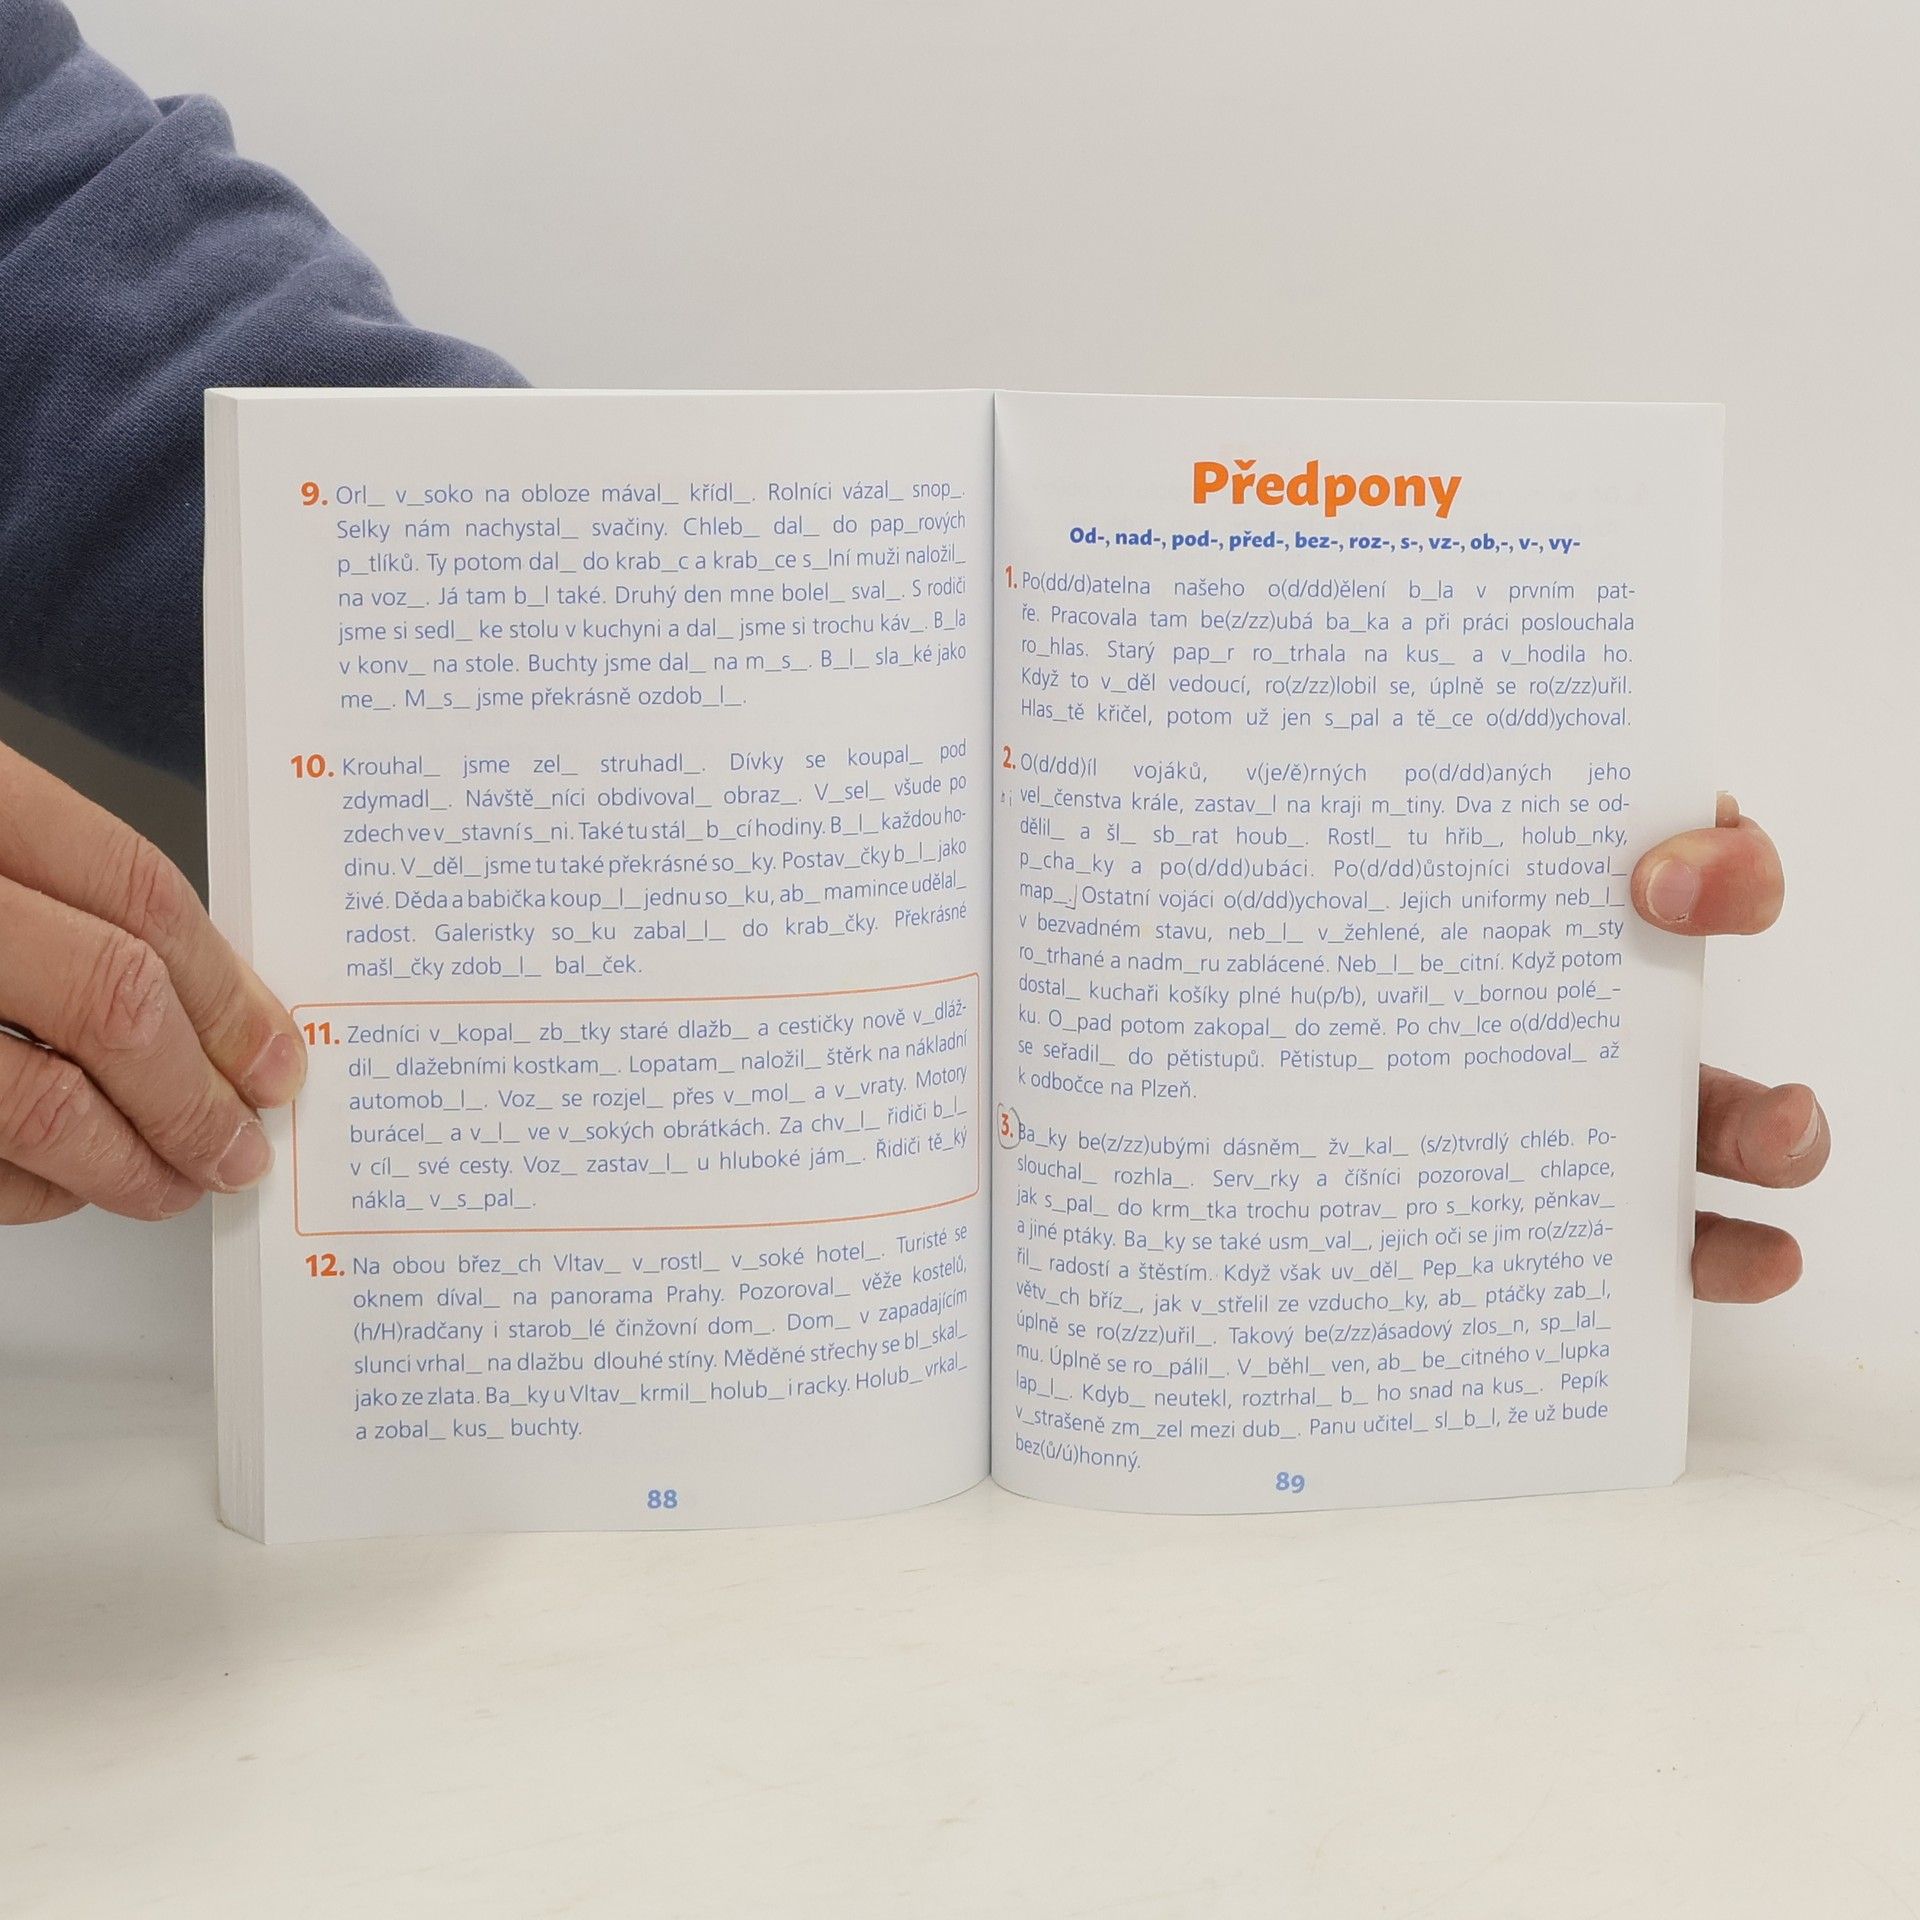 9. Orl_ v_soko na obloze mával_ křídl_. Rolníci vázal_ snop_.
Selky nám nachystal_ svačiny. Chleb_ dal_ do pap_rových
p_tlíků. Ty potom dal_ do krab_c a krab_ce s_lní muži naložil_
na voz_. Já tam b_l také. Druhý den mne bolel_ sval_. S rodiči
jsme si sedl_ ke stolu v kuchyni a dal_ jsme si trochu káv_. B_la
v konv_ na stole. Buchty jsme dal_ na m_s_. B_l_ sla_ké jako
me_. M_s_ jsme překrásně ozdob_l_.
10. Krouhal_ jsme zel_ struhadl_. Dívky se koupal_ pod
zdymadl_. Návště_níci obdivoval_ obraz_. V_sel_ všude po
zdech ve v_stavní s_ni. Také tu stál_ b_cí hodiny. B_l_ každou ho-
dinu. V_děl_ jsme tu také překrásné so_ky. Postav_čky b_l_ jako
živé. Děda a babička koup_l_ jednu so_ku, ab_ mamince udělal_
radost. Galeristky so_ku zabal_l_ do krab_čky. Překrásné
mašl_čky zdob_l_ bal_ček.
11. Zedníci v_kopal_ zb_tky staré dlažb_ a cestičky nově v_dláž-
dil_ dlažebními kostkam_. Lopatam_ naložil_ štěrk na nákladní
automob_l_. Voz_ se rozjel_ přes v_mol_ a v_vraty. Motory
burácel_ a v_l_ ve v_sokých obrátkách. Za chv_l_ řidiči b_l_
v cíl_ své cesty. Voz_ zastav_l_ u hluboké jám_. Řidiči tě_ký
nákla_ v_s_pal_.
12. Na obou břez_ch Vltav_ v_rostl_ v_soké hotel_. Turisté se
oknem díval_ na panorama Prahy. Pozoroval_ věže kostelů,
(h/H)radčany i starob_lé činžovní dom_. Dom_ v zapadajícím
slunci vrhal_ na dlažbu dlouhé stíny. Měděné střechy se bl_skal_
jako ze zlata. Ba_ky u Vltav_ krmil_ holub_ i racky. Holub_ vrkal_
a zobal_ kus_ buchty.
88
Předpony
Od-, nad-, pod-, před-, bez-, roz-, s-, vz-, ob,-, v-, vy-
1. Po(dd/d)atelna našeho o(d/dd)ělení b_la v prvním pat-
ře. Pracovala tam be(z/zz)ubá ba_ka a při práci poslouchala
ro_hlas. Starý pap_r ro_trhala na kus_ a v_hodila ho.
Když to v_děl vedoucí, ro(z/zz)lobil se, úplně se ro(z/zz)uřil.
Hlas_tě křičel, potom už jen s_pal a tě_ce o(d/dd)ychoval.
2. O(d/dd)íl vojáků, v(je/ě)rných po(d/dd)aných jeho
vel_čenstva krále, zastav_l na kraji m_tiny. Dva z nich se od-
dělil_ a šl_ sb_rat houb_. Rostl_ tu hřib_, holub_nky,
p_cha_ky a po(d/dd)ubáci. Po(d/dd)ůstojníci studoval_
map_. Ostatní vojáci o(d/dd)ychoval_. Jejich uniformy neb_l_
v bezvadném stavu, neb_l_ v_žehlené, ale naopak m_sty
ro_trhané a nadm_ru zablácené. Neb_l_ be_citní. Když potom
dostal_ kuchaři košíky plné hu(p/b), uvařil_ v_bornou polé_-
ku. O_pad potom zakopal_ do země. Po chv_lce o(d/dd)echu
se seřadil_ do pětistupů. Pětistup_ potom pochodoval_ až
k odbočce na Plzeň.
3. Ba_ky be(z/zz)ubými dásněm_ žv_kal_ (s/z)tvrdlý chléb. Po-
slouchal_ rozhla_. Serv_rky a číšníci pozoroval_ chlapce,
jak s_pal_ do krm_tka trochu potrav_ pro s_korky, pěnkav_
a jiné ptáky. Ba_ky se také usm_val_, jejich oči se jim ro(z/zz)á-
řil_ radostí a štěstím. Když však uv_děl_ Pep_ka ukrytého ve
větv_ch bříz_, jak v_střelil ze vzducho_ky, ab_ ptáčky zab_l,
úplně se ro(z/zz)uřil_. Takový be(z/zz)ásadový zlos_n, sp_lal_
mu. Úplně se ro_pálil_. V_běhl_ ven, ab_ be_citného v_lupka
lap_l_. Kdyb_ neutekl, roztrhal_ b_ ho snad na kus_. Pepík
v_strašeně zm_zel mezi dub_. Panu učitel_ sl_b_l, že už bude
bez(ů/ú)honný.
89